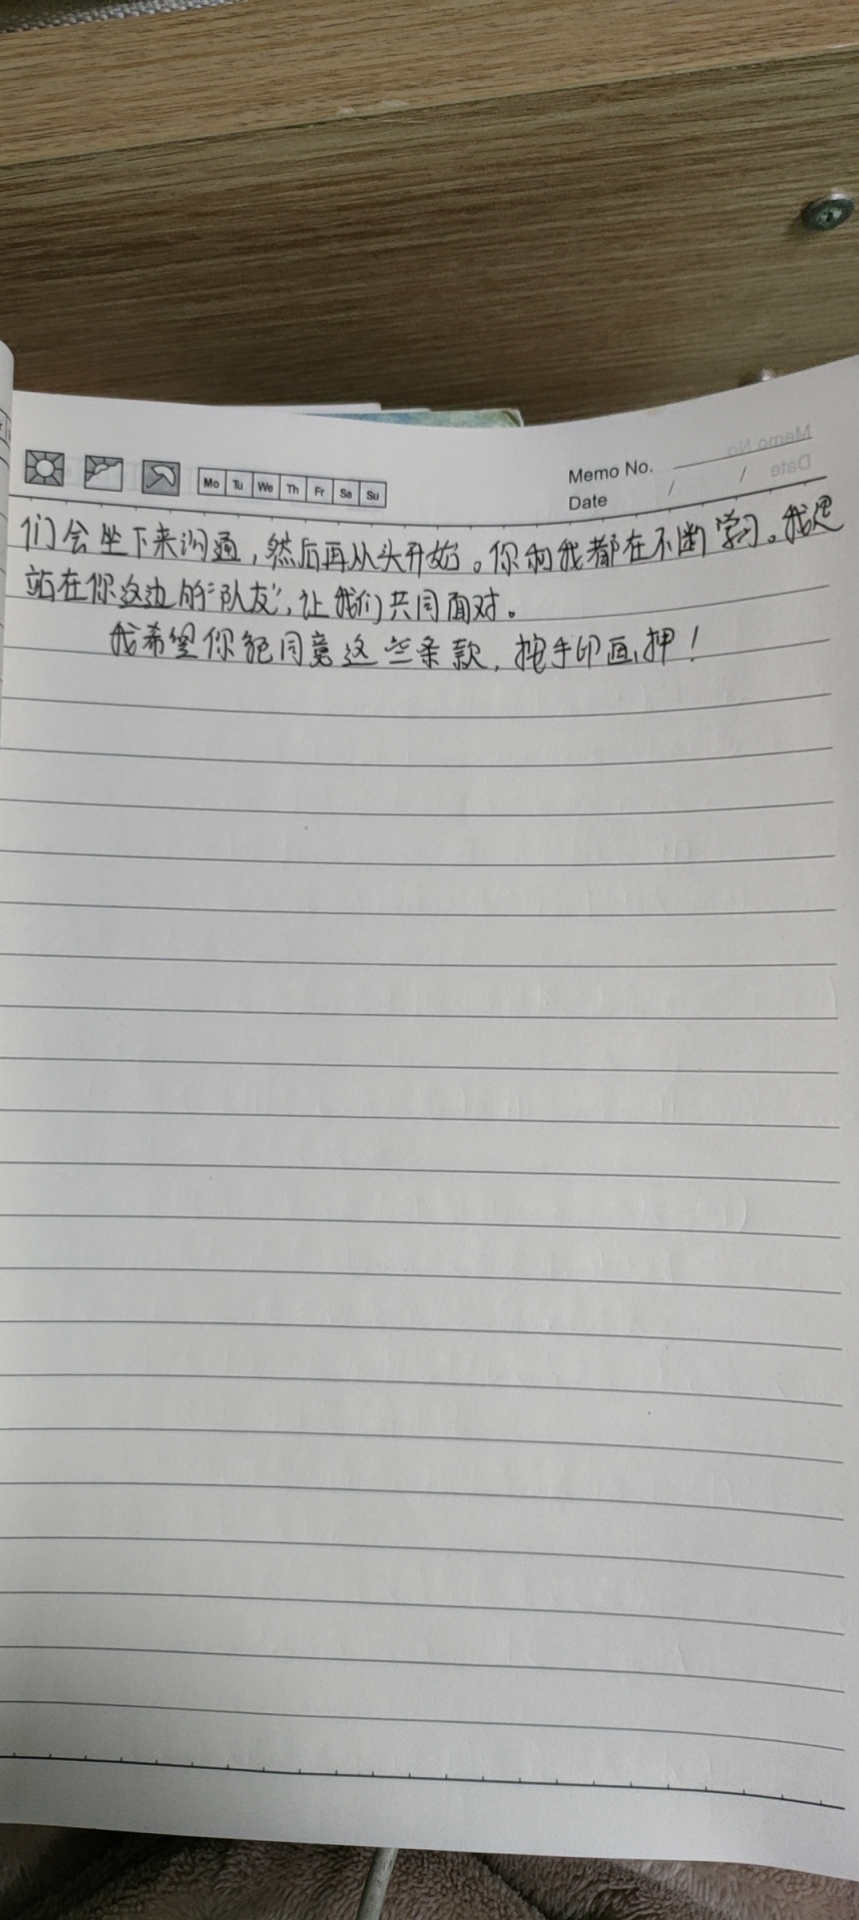 Memo No.
Mo Tu We Th Fr Sa Su
Date / /
们会坐下来沟通,然后再从头开始。你和我都在不断学习。我是
站在你这边的“队友”,让我们共同面对。
我希望你能同意这些条款,按手印画押!